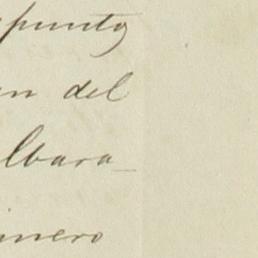 punto
en del
lbara
inero